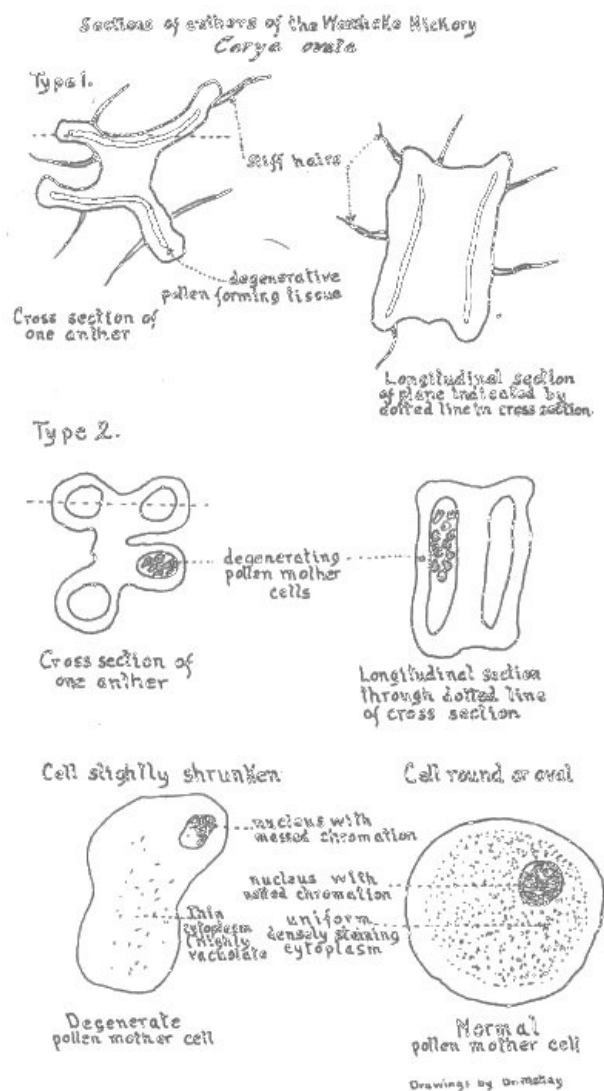 Sections of anthers of the Weschcke Hickory
Carya ovata
Type 1.
stiff hairs
degenerative
pollen forming tissue
Cross section of
one anther
Longitudinal section
of plane indicated by
dotted line in cross section.
Type 2.
degenerating
pollen mother
cells
Cross section of
one anther
Longitudinal section
through dotted line
of cross section
Cell slightly shrunken
Cell round or oval
nucleus with
massed chromation
nucleus with
netted chromation
Thin
cytoplasm
(highly
vacuolate
uniform
densely staining
cytoplasm
Degenerate
pollen mother cell
Normal
pollen mother cell
Drawings by Dr. McKay